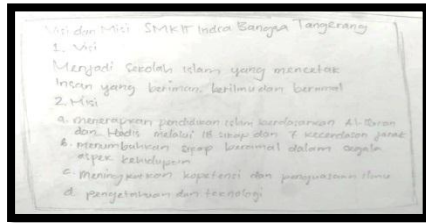 Visi dan Misi SMKIT Indra Bangsa Tangerang
1. Visi
Menjadi Sekolah Islam yang mencetak
Insan yang beriman, berilmu dan beramal
2. Misi
a. menerapkan pendidikan islami berdasarkan Al-Quran
dan Hadis melalui 18 sikap dan 7 kecerdasan
b. menumbuhkan sikap beramal dalam segala
aspek kehidupan
c. meningkatkan kopetensi dan penguasaan ilmu
d. pengetahuan dan teknologi